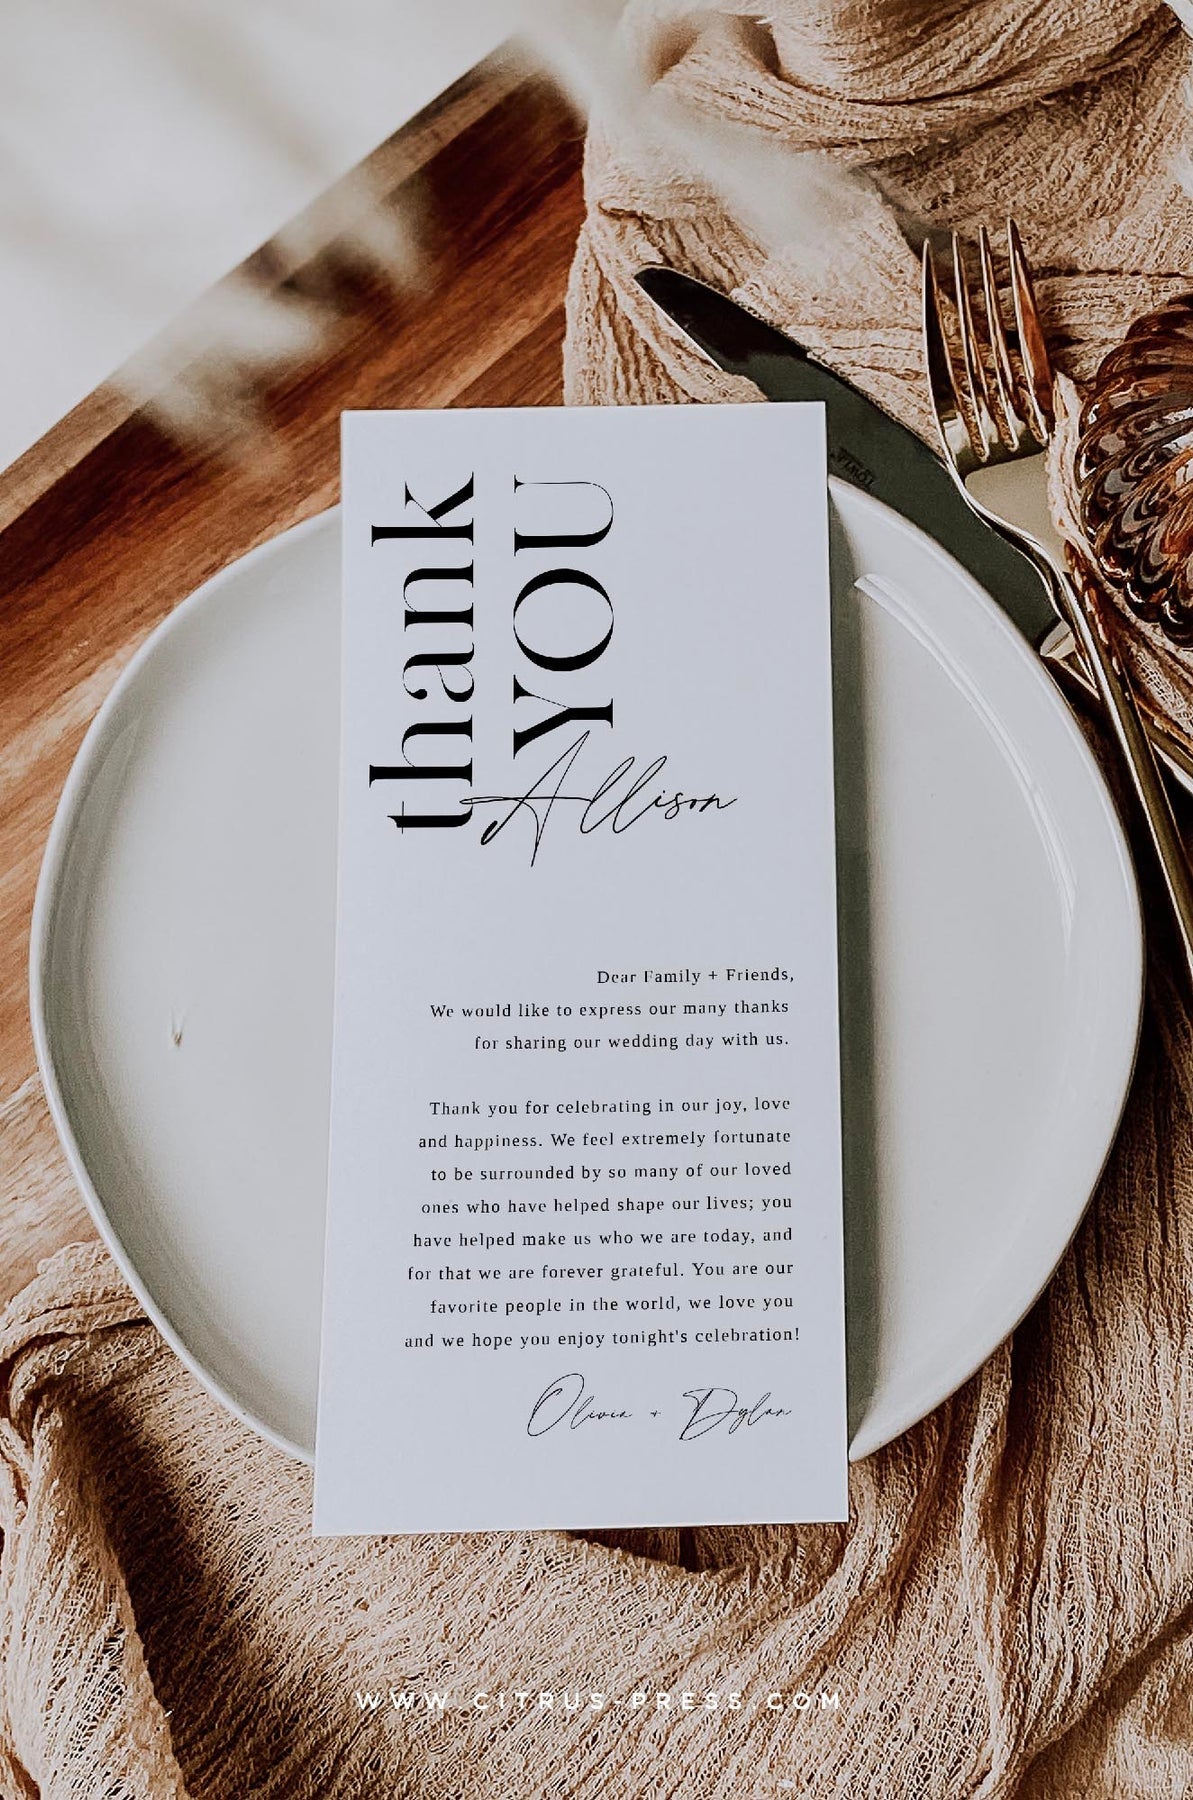 thank
YOU
Allison
Dear Family + Friends,
We would like to express our many thanks
for sharing our wedding day with us.
Thank you for celebrating in our joy, love
and happiness. We feel extremely fortunate
to be surrounded by so many of our loved
ones who have helped shape our lives; you
have helped make us who we are today, and
for that we are forever grateful. You are our
favorite people in the world, we love you
and we hope you enjoy tonight's celebration!
Olivia + Dylan
WWW.CITRUS-PRESS.COM